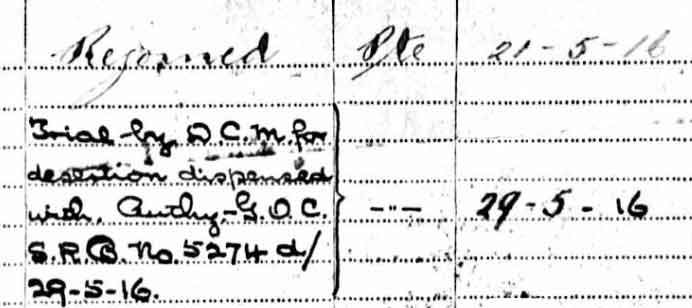 Rejoined Pte 21-5-16
Trial by D.C.M. for
desertion dispensed
with. Authy.-G.O.C. -"- 29-5-16
S.R.B. No. 5274 d/
29-5-16.